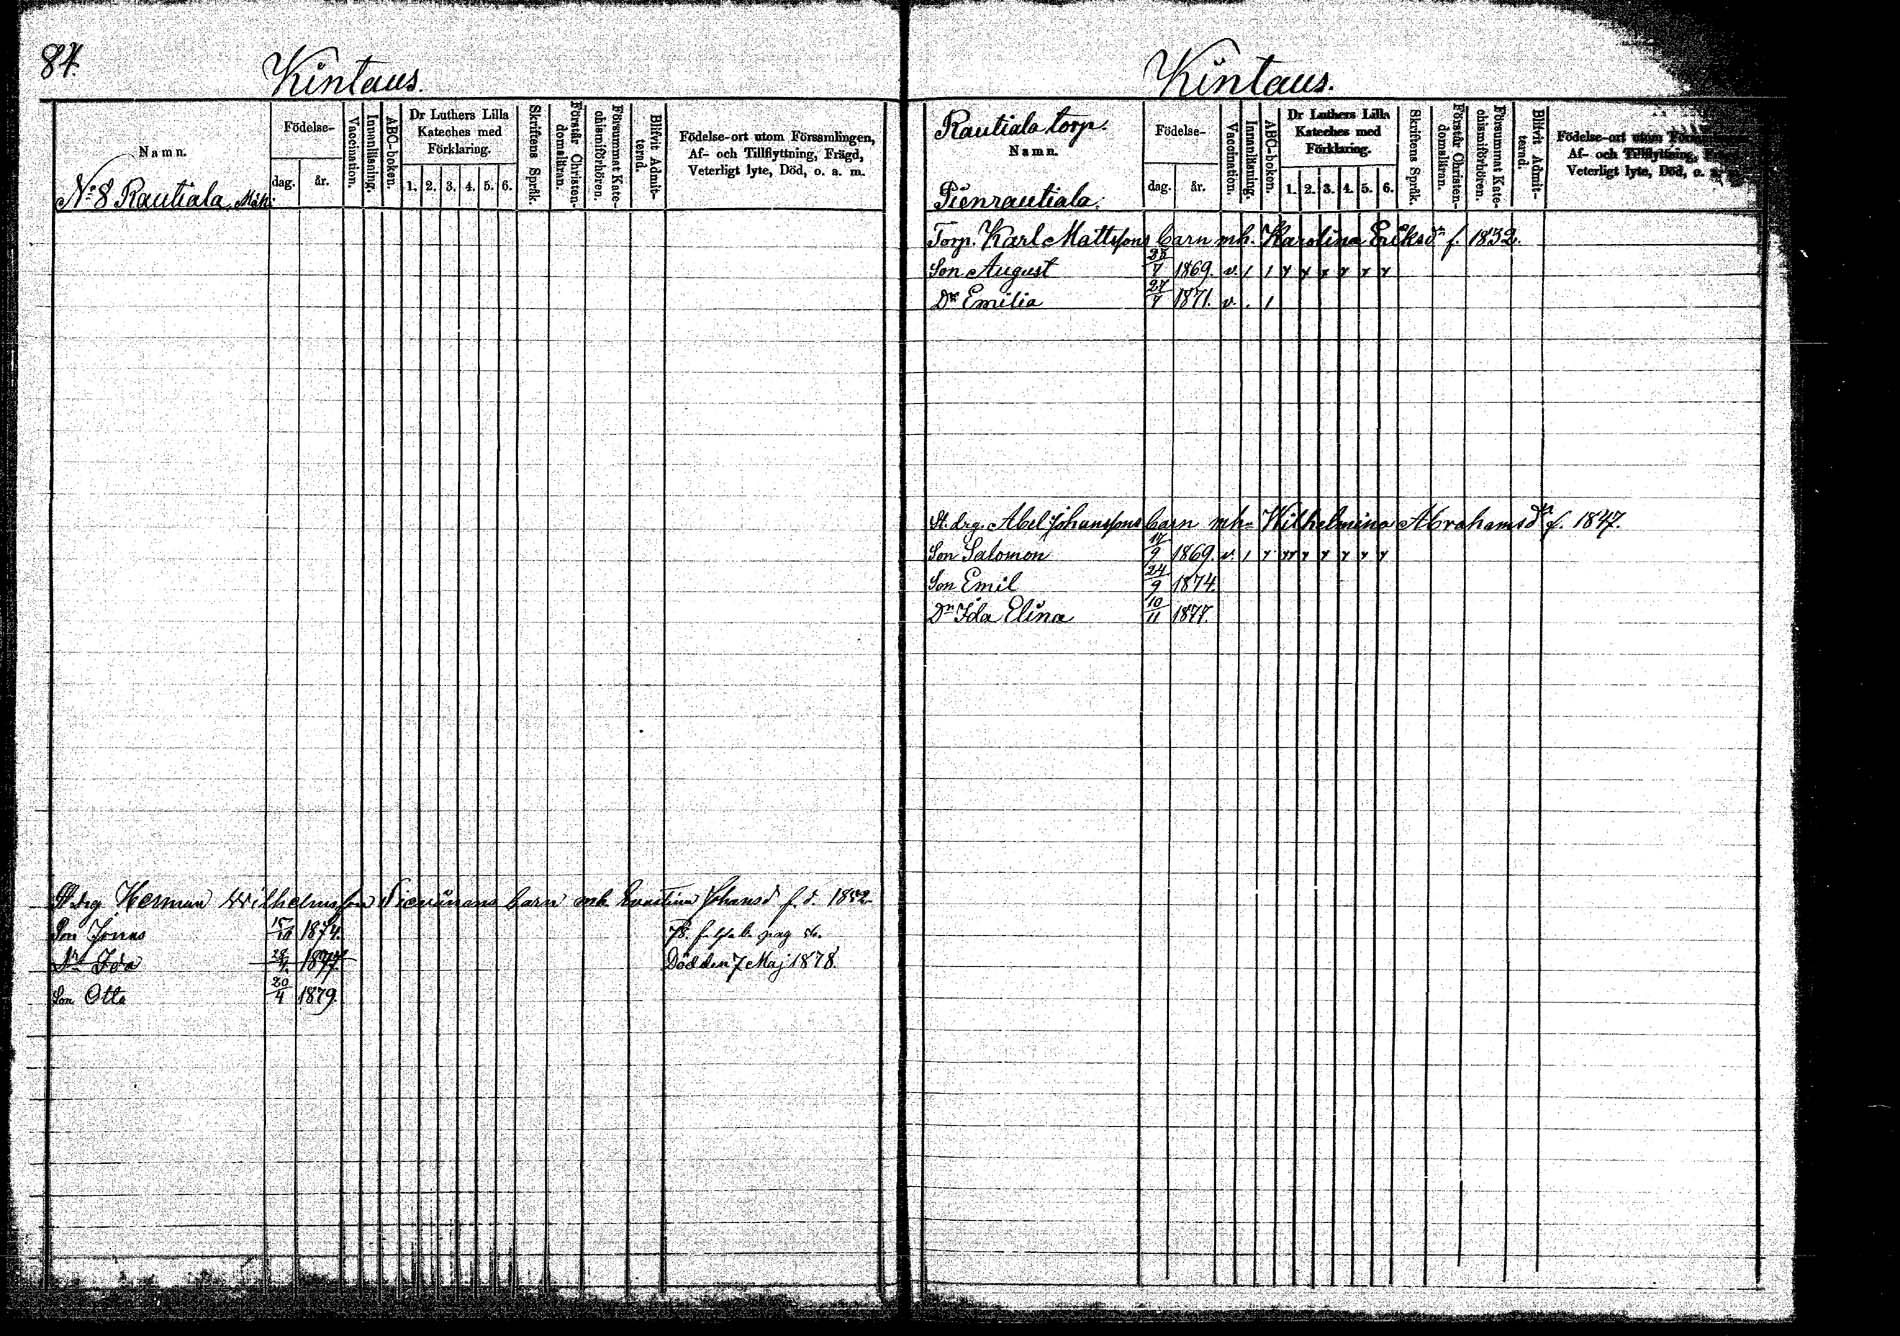 84.
Kintaus.
Namn.
Födelse-
dag.
år.
Vaccination.
Innanläsning.
ABC-boken.
Dr Luthers Lilla
Kateches med
Förklaring.
1. 2. 3. 4. 5. 6.
Skriftens Språk.
Förstår Christen-
domsläran.
Försummat Kate-
chismiförhören.
Blifvit Admit-
terad.
Födelse-ort utom Församlingen,
Af- och Tillflyttning, Frägd,
Veterligt lyte, Död, o. a. m.
No 8 Rautiala.
St. drg Herman Wilhelmsson barn mh. Johansd f. d. 1852
Son Jonas 15/10 1874. 78. pag
Dr Ida 1877. Död den 7 Maj 1878.
Son Otto 20/4 1879.
Kintaus.
Rautiala torp.
Namn.
Födelse-
dag.
år.
Vaccination.
Innanläsning.
ABC-boken.
Dr Luthers Lilla
Kateches med
Förklaring.
1. 2. 3. 4. 5. 6.
Skriftens Språk.
Förstår Christen-
domsläran.
Försummat Kate-
chismiförhören.
Blifvit Admit-
terad.
Födelse-ort utom
Af- och Tillflyttning,
Veterligt lyte, Död, o. a.
Pienrautiala.
Torp. Karl Mattssons barn mh. Karolina Eriksdr f. 1832.
Son August 28/7 1869. v.
Dr Emilia 27/7 1871. v.
St. drg. Abel Johanssons barn mh. Wilhelmina Abrahamsdr f. 1847.
Son Salomon 17/9 1869. v.
Son Emil 24/9 1874.
Dr Ida Elina 10/11 1877.